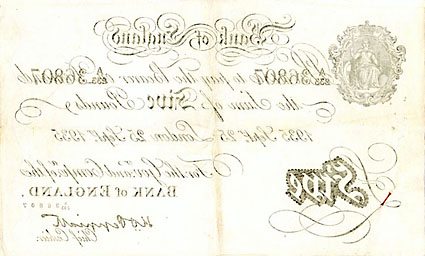 Bank of England
36807 to pay the Bearer 36807
the Sum of Five Pounds
1935 Sept. 25 London 25 Sept. 1935
For the Govr. and Compa. of the
BANK of ENGLAND.
Chief Cashier.
Five